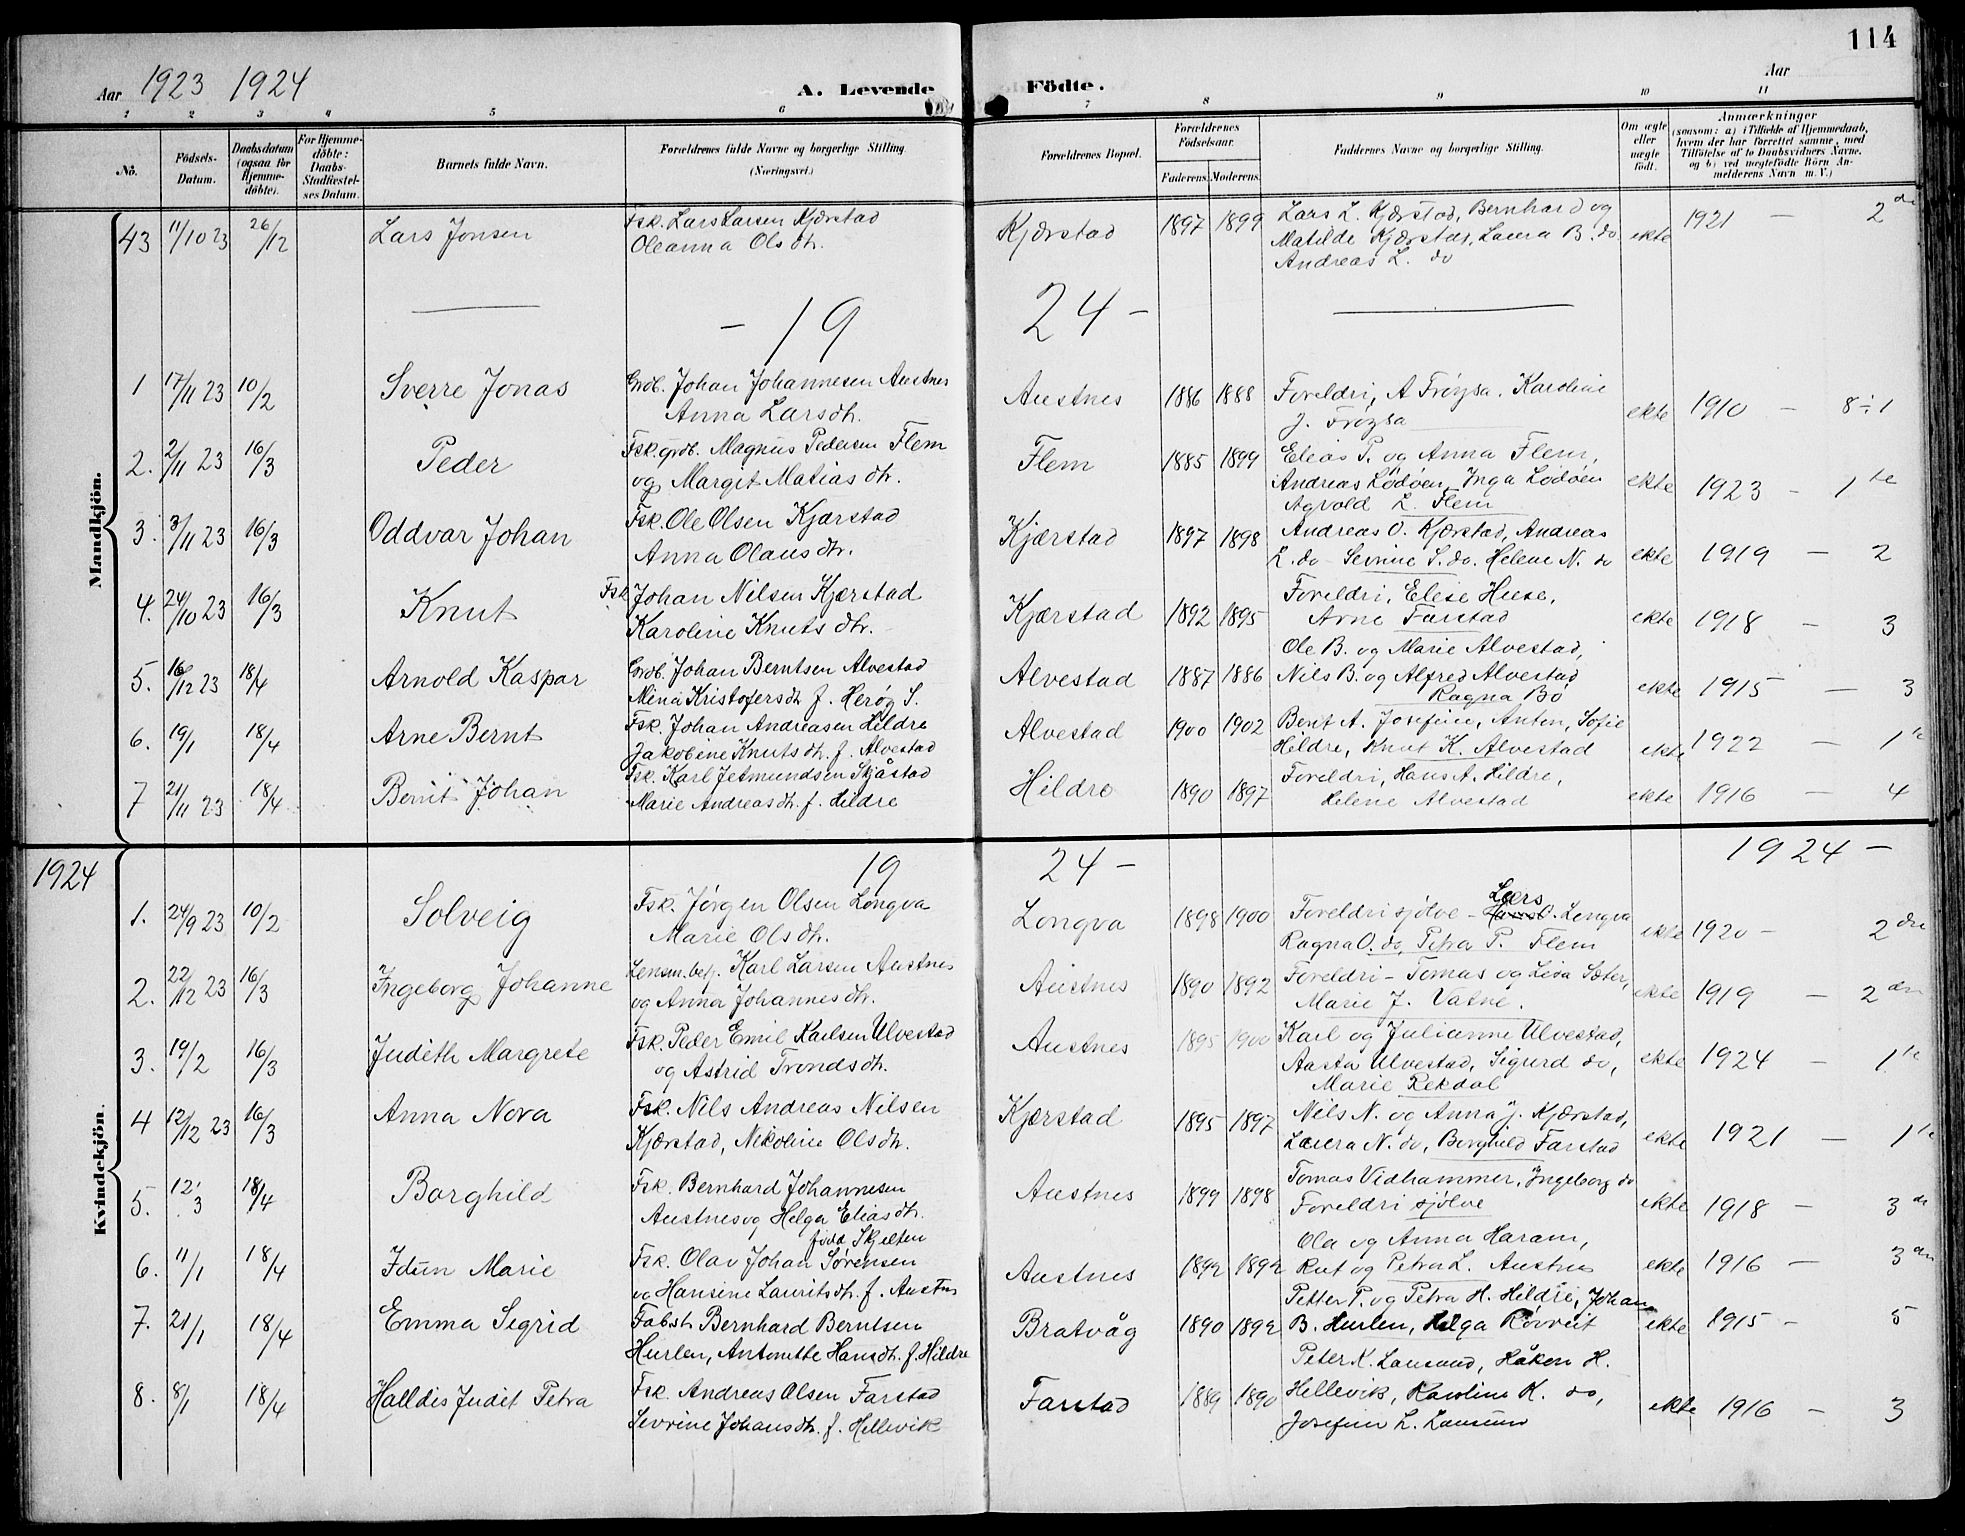 114
Aar 1923 1924
A. Levende
Födte.
Aar
1 2 3 4 5 6 7 8 9 10 11
No.
Födsels-Datum.
Daabsdatum (ogsaa for Hjemmedöbte).
For Hjemmedöbte: Daabs-Stadfæstelses Datum.
Barnets fulde Navn.
Forældrenes fulde Navne og borgerlige Stilling (Næringsvei.)
Forældrenes Bopæl.
Forældrenes Födselsaar.
Faderens. Moderens.
Faddernes Navne og borgerlige Stilling.
Om ægte eller uægte födt.
Anmærkninger (saasom: a) i Tilfælde af Hjemmedaab, hvem der har forrettet samme, med Tilföielse af to Daabsvidners Navne, og b) ved uegtefödte Börn Anmelderens Navn m. V.)
Mandkjön.
43 11/10 23 26/12 Lars Jonsen Fsk. Lars Larsen Kjærstad
Oleanna Olsdtr. Kjærstad 1897 1899 Lars L. Kjærstad, Bernhard og
Matilde Kjærstad, Laura B. do
Andreas L. do ekte 1921 — 2 dn
— 19 24 —
1 17/11 23 10/2 Sverre Jonas Grdb. Johan Johannesen Austnes
Anna Larsdtr. Austnes 1886 1888 Foreldri, A Frøysa. Karoline
J. Frøysa ekte 1910 — 8÷1
2. 2/11 23 16/3 Peder Fsk. grdb. Magnus Pedersen Flem
og Margit Matiasdtr. Flem 1885 1899 Elias P. og Anna Flem,
Andreas Lødøen, Inga Lødøen
Agvold L. Flem ekte 1923 — 1 te
3. 3/11 23 16/3 Oddvar Johan Fsk. Ole Olsen Kjærstad
Anna Olausdtr. Kjærstad 1897 1898 Andreas O. Kjærstad, Andreas
L. do Sevrine S. do. Helene N. do ekte 1919 — 2
4. 24/10 23 16/3 Knut Fsk Johan Nilsen Kjærstad
Karoline Knutsdtr. Kjærstad 1892 1895 Foreldri, Elise Huse,
Arne Farstad ekte 1918 — 3
5. 16/12 23 18/4 Arnold Kaspar Grdb. Johan Berntsen Alvestad
Mina Kristofersdtr f. Herøy S. Alvestad 1887 1886 Ole B. og Marie Alvestad,
Nils B. og Alfred Alvestad
Ragna Bø ekte 1915 — 3
6. 19/1 18/4 Arne Bernt Fsk. Johan Andreasen Hildre
Jakobine Knutsdtr. f. Alvestad Alvestad 1900 1902 Bernt A. Josefine, Anton, Sofie
Hildre, Knut K. Alvestad ekte 1922 — 1 te
7 21/11 23 18/4 Bernt Johan Fsk. Karl Jetmundsen Skjåstad
Marie Andreasdtr. f. Hildre Hildre 1890 1897 Foreldri, Hans A. Hildre,
Helene Alvestad ekte 1916 — 4
1924
19 24 — 1924 —
Kvindekjön.
1. 24/9 23 10/2 Solveig Fsk. Jørgen Olsen Longva
Marie Olsdtr. Longva 1898 1900 Foreldri sjølve - Lars O. Longva
Ragna O. do, Petra P. Flem ekte 1920 — 2 dn
2. 22/12 23 16/3 Ingeborg Johanne Lensm. betj. Karl Larsen Austnes
og Anna Johannesdtr. Austnes 1890 1892 Foreldri - Tomas og Lisa Sæter,
Marie J. Vatne. ekte 1919 — 2 dn
3. 19/2 16/3 Judith Margrete Fsk. Peder Emil Karlsen Ulvestad
og Astrid Trondsdtr. Austnes 1895 1900 Karl og Julianne Ulvestad,
Aasta Ulvestad, Sigurd do,
Marie Rekdal ekte 1924 — 1 te
4 12/12 23 16/3 Anna Nora Fsk. Nils Andreas Nilsen
Kjærstad, Nikoline Olsdtr. Kjærstad 1895 1897 Nils N. og Anna J. Kjærstad,
Laura N. do, Borghild Farstad ekte 1921 — 1 te
5. 12/3 18/4 Borghild Fsk. Bernhard Johannesen
Austnes og Helga Eliasdtr.
född Skjelten Austnes 1899 1898 Tomas Vidhammer, Ingeborg do
Foreldri sjølve ekte 1918 — 3 dn
6. 11/1 18/4 Idun Marie Fsk. Olav Johan Sørensen
og Hansine Lauritsdtr. f. Austnes Austnes 1892 1892 Ola og Anna Haram,
Rut og Petra L. Austnes ekte 1916 — 3 dn
7. 21/1 18/4 Emma Sigrid Fabst Bernhard Berntsen
Hurlen, Antonette Hansdtr. f. Hildre Bratvåg 1890 1892 Petter P. og Petra H. Hildre, Johan
B. Hurlen, Helga Rørveit ekte 1915 — 5
8. 8/1 18/4 Halldis Judit Petra Fsk. Andreas Olsen Farstad
Sevrine Johansdtr. f. Hellevik Farstad 1889 1890 Peter K. Lausund, Håkon H.
Hellevik, Karoline K. do,
Josefine L. Lausund ekte 1916 — 3